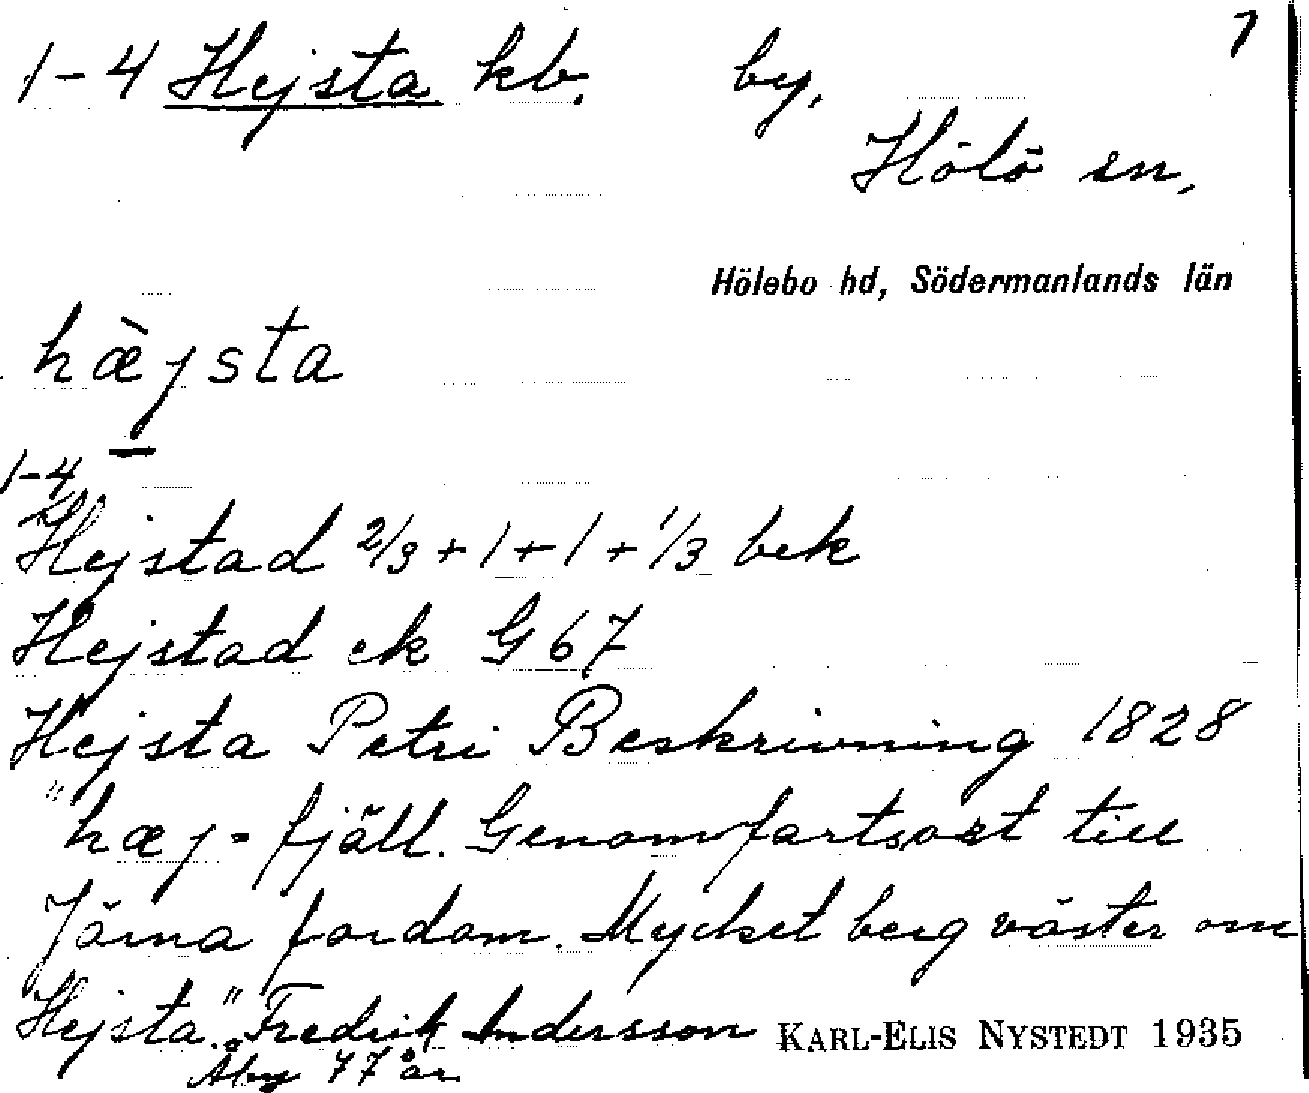 7
1-4 Hejsta kb. by,
Hölö sn,
Hölebo hd, Södermanlands län
hæ̀jsta
1-4
Hejstad 2/3+1+1+1/3 bek
Hejstad ek G 67
Hejsta Petri Beskrivning 1828
"hæj= fjäll. Genomfartsort till
Järna fordom. Mycket berg väster om
Hejsta". Fredrik Andersson KARL-ELIS NYSTEDT 1935
Åby 77 år